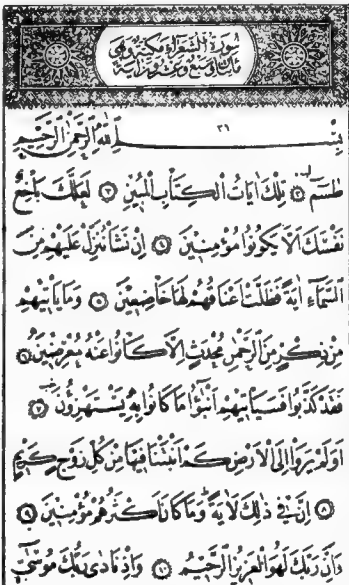 سُورَةُ الشُّعَرَاءِ مَكِّيَّةٌ وَهِيَ
مِائَتَانِ وَسَبْعٌ وَعِشْرُونَ اٰيَةً
٢٦
بِسْمِ اللّٰهِ الرَّحْمٰنِ الرَّحِيمِ
طٰسٓمٓ تِلْكَ اٰيَاتُ الْكِتَابِ الْمُبِينِ لَعَلَّكَ بَاخِعٌ
نَفْسَكَ اَلَّا يَكُونُوا مُؤْمِنِينَ اِنْ نَشَأْ نُنَزِّلْ عَلَيْهِمْ مِنَ
السَّمَاءِ اٰيَةً فَظَلَّتْ اَعْنَاقُهُمْ لَهَا خَاضِعِينَ وَمَا يَأْتِيهِمْ
مِنْ ذِكْرٍ مِنَ الرَّحْمٰنِ مُحْدَثٍ اِلَّا كَانُوا عَنْهُ مُعْرِضِينَ
فَقَدْ كَذَّبُوا فَسَيَأْتِيهِمْ اَنْبٰٓؤُا مَا كَانُوا بِهِ يَسْتَهْزِؤُنَ
اَوَلَمْ يَرَوْا اِلَى الْاَرْضِ كَمْ اَنْبَتْنَا فِيهَا مِنْ كُلِّ زَوْجٍ كَرِيمٍ
اِنَّ فِي ذٰلِكَ لَاٰيَةً وَمَا كَانَ اَكْثَرُهُمْ مُؤْمِنِينَ
وَاِنَّ رَبَّكَ لَهُوَ الْعَزِيزُ الرَّحِيمُ وَاِذْ نَادٰى رَبُّكَ مُوسٰٓى